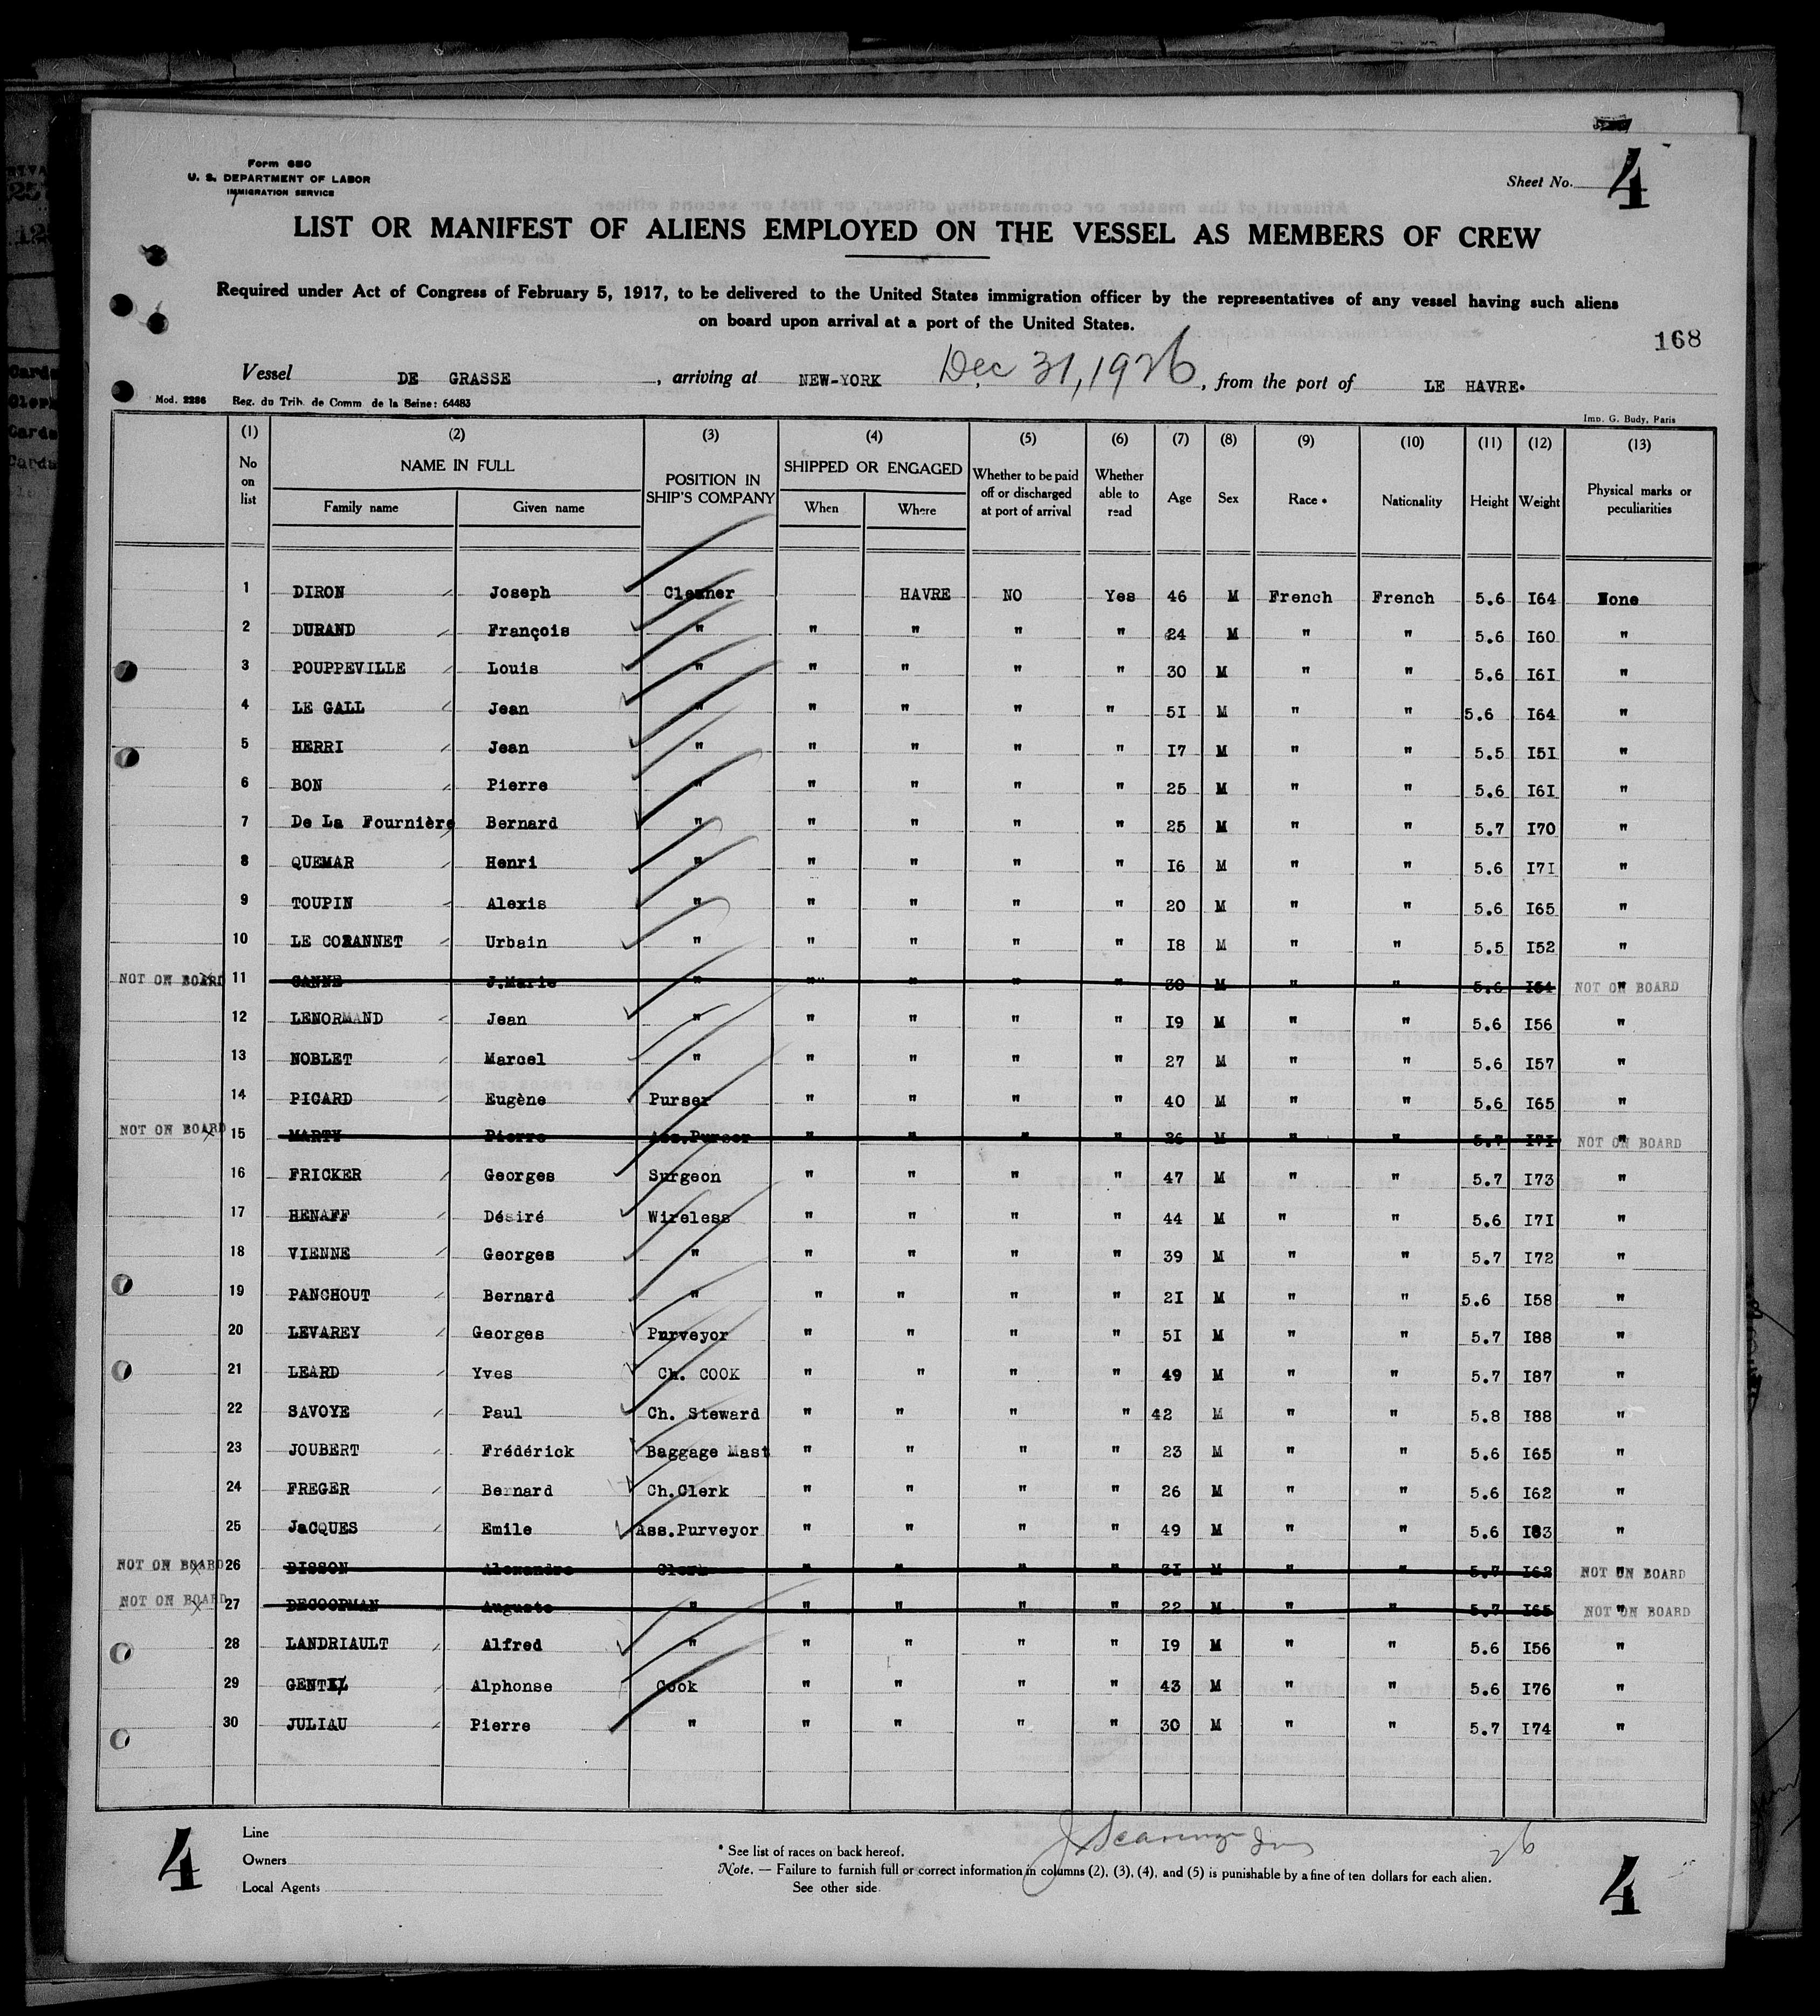 Form 680
U. S. DEPARTMENT OF LABOR
IMMIGRATION SERVICE
Sheet No. 4
LIST OR MANIFEST OF ALIENS EMPLOYED ON THE VESSEL AS MEMBERS OF CREW
Required under Act of Congress of February 5, 1917, to be delivered to the United States immigration officer by the representatives of any vessel having such aliens
on board upon arrival at a port of the United States.
168
Vessel DE GRASSE, arriving at NEW-YORK Dec 31, 1926, from the port of LE HAVRE.
Mod. 2286 Reg. du Trib. de Comm. de la Seine: 64483
Imp. G. Budy, Paris
(1) (2) (3) (4) (5) (6) (7) (8) (9) (10) (11) (12) (13)
No on list NAME IN FULL Family name Given name POSITION IN SHIP'S COMPANY SHIPPED OR ENGAGED When Where Whether to be paid off or discharged at port of arrival Whether able to read Age Sex Race * Nationality Height Weight Physical marks or peculiarities
1 DIRON Joseph Cleaner HAVRE NO Yes 46 M French French 5.6 I64 None
2 DURAND François " " " " " 24 M " " 5.6 I60 "
3 POUPPEVILLE Louis " " " " " 30 M " " 5.6 I6I "
4 LE GALL Jean " " " " " 5I M " " 5.6 I64 "
5 HERRI Jean " " " " " I7 M " " 5.5 I5I "
6 BON Pierre " " " " " 25 M " " 5.6 I6I "
7 De La Fournière Bernard " " " " " 25 M " " 5.7 I70 "
8 QUEMAR Henri " " " " " I6 M " " 5.6 I7I "
9 TOUPIN Alexis " " " " " 20 M " " 5.6 I65 "
10 LE CORANNET Urbain " " " " " I8 M " " 5.5 I52 "
NOT ON BOARD 11 CANNE J.Marie " " " " " 30 M " " 5.6 I54 " NOT ON BOARD
12 LENORMAND Jean " " " " " I9 M " " 5.6 I56 "
13 NOBLET Marcel " " " " " 27 M " " 5.6 I57 "
14 PICARD Eugène Purser " " " " 40 M " " 5.6 I65 "
NOT ON BOARD 15 MARTY Pierre Ass.Purser " " " " 26 M " " 5.7 I7I " NOT ON BOARD
16 FRICKER Georges Surgeon " " " " 47 M " " 5.7 I73 "
17 HENAFF Désiré Wireless " " " " 44 M " " 5.6 I7I "
18 VIENNE Georges " " " " " 39 M " " 5.7 I72 "
19 PANCHOUT Bernard " " " " " 2I M " " 5.6 I58 "
20 LEVAREY Georges Purveyor " " " " 5I M " " 5.7 I88 "
21 LEARD Yves Ch. COOK " " " " 49 M " " 5.7 I87 "
22 SAVOYE Paul Ch. Steward " " " " 42 M " " 5.8 I88 "
23 JOUBERT Frédérick Baggage Mast " " " " 23 M " " 5.6 I65 "
24 FREGER Bernard Ch.Clerk " " " " 26 M " " 5.6 I62 "
25 JaCQUES Emile Ass.Purveyor " " " " 49 M " " 5.6 I83 "
NOT ON BOARD 26 BISSON Alexandre Clerk " " " " 3I M " " 5.7 I62 " NOT ON BOARD
NOT ON BOARD 27 DECOOPMAN Auguste " " " " " 22 M " " 5.7 I65 " NOT ON BOARD
28 LANDRIAULT Alfred " " " " " I9 M " " 5.6 I56 "
29 GENTIL Alphonse Cook " " " " 43 M " " 5.6 I76 "
30 JULIAU Pierre " " " " " 30 M " " 5.7 I74 "
4
Line
Owners
Local Agents
* See list of races on back hereof.
Note. — Failure to furnish full or correct information in columns (2), (3), (4), and (5) is punishable by a fine of ten dollars for each alien.
See other side
26
4